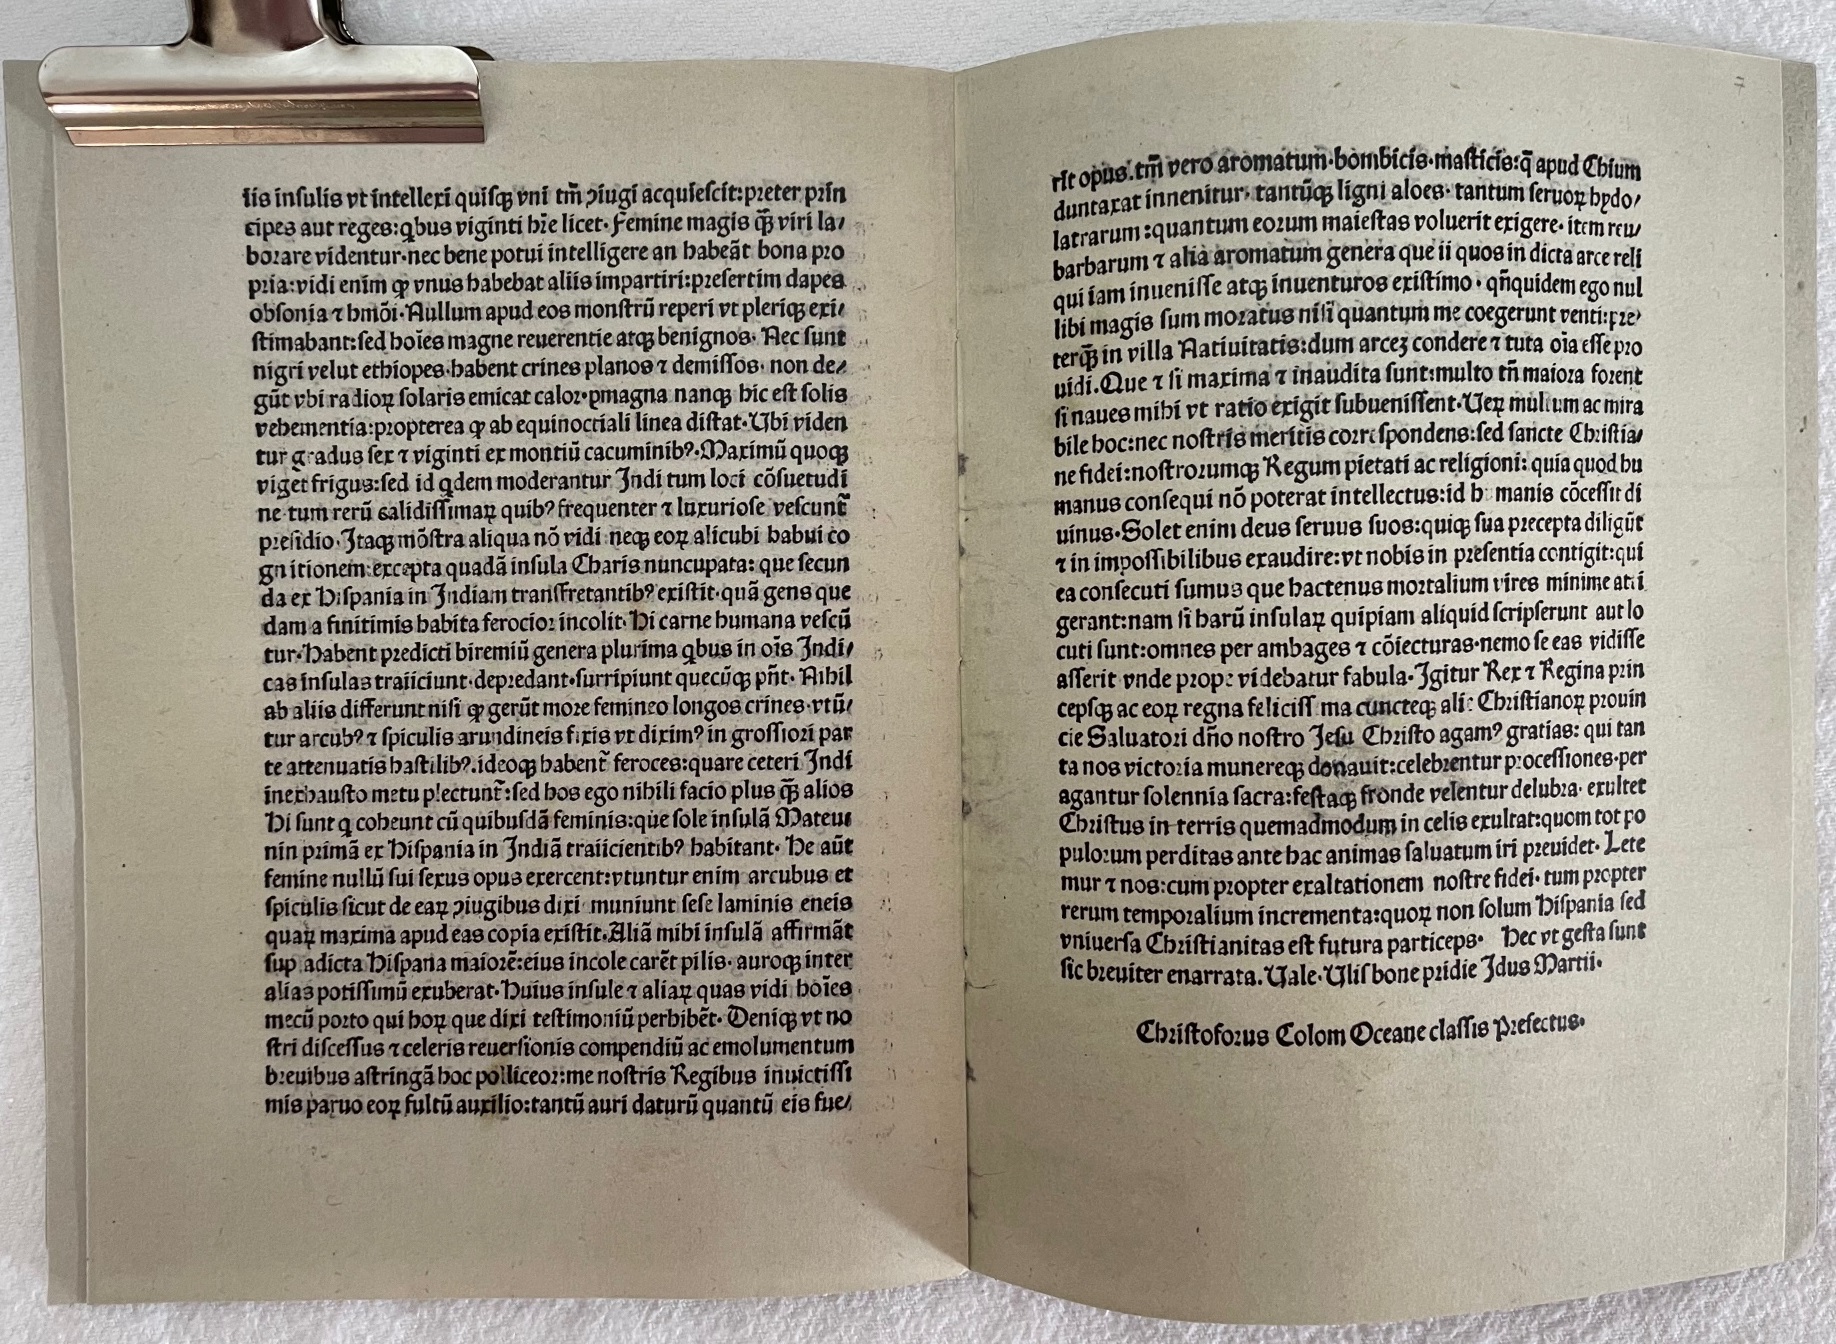 iis insulis vt intellexi quisqꝫ vni tm̄ ↄiugi acquiescit:preter prin
cipes aut reges:qbus viginti hr̄e licet· Femine magis qꝫ̄ viri la/
borare videntur·nec bene potui intelligere an habeāt bona pro
pria:vidi enim ꝙ vnus habebat aliis impartiri:presertim dapes
obsonia ⁊ hmōi·Nullum apud eos monstrū reperi vt pleriqꝫ exi/
stimabant:sed hoīes magne reuerentie atqꝫ benignos· Nec sunt
nigri velut ethiopes·habent crines planos ⁊ demissos· non de/
gūt vbi radioꝝ solaris emicat calor·ꝑmagna nanqꝫ hic est solis
vehementia:propterea ꝙ ab equinoctiali linea distat·Ubi viden
tur gradus sex ⁊ viginti ex montiū cacuminibꝰ·Maximū quoqꝫ
viget frigus:sed id qdem moderantur Indi tum loci cōsuetudi
ne tum rerū calidissimaꝝ quibꝰ frequenter ⁊ luxuriose vescunt̄
presidio·Itaqꝫ mōstra aliqua nō vidi neqꝫ eoꝝ alicubi habui co
gnitionem:excepta quadā insula Charis nuncupata: que secun
da ex Hispania in Indiam transfretantibꝰ existit·quā gens que
dam a finitimis habita ferocior incolit· Hi carne humana vescū
tur·Habent predicti biremiū genera plurima qbus in oīs Indi/
cas insulas traiiciunt·depredant·surripiunt quecūqꝫ pn̄t· Nihil
ab aliis differunt nisi ꝙ gerūt more femineo longos crines·vtū/
tur arcubꝰ ⁊ spiculis arundineis fixis vt diximꝰ in grossiori par
te attenuatis hastilibꝰ.ideoqꝫ habent̄ feroces:quare ceteri Indi
inexhausto metu plectunt̄:sed hos ego nihili facio plus qꝫ̄ alios
Hi sunt q coheunt cū quibusdā feminis:que sole insulā Mateu
nin primā ex Hispania in Indiā traiicientibꝰ habitant· He aūt
femine nullū sui sexus opus exercent:vtuntur enim arcubus et
spiculis sicut de eaꝝ ↄiugibus dixi· muniunt sese laminis eneis
quaꝝ maxima apud eas copia existit.Aliā mihi insulā affirmāt
sup adicta Hispana maiorē:eius incole carēt pilis· auroqꝫ inter
alias potissimū exuberat·Huius insule ⁊ aliaꝝ quas vidi hoīes
mecū porto qui hoꝝ que dixi testimoniū perhibēt· Deniqꝫ vt no
stri discessus ⁊ celeris reuersionis compendiū ac emolumentum
breuibus astringā hoc polliceor:me nostris Regibus inuictissi
mis paruo eoꝝ fultū auxilio:tantū auri daturū quantū eis fue/
rit opus.tm̄ vero aromatum·bombicis·masticis:q̄ apud Chium
duntaxat innenitur· tantūqꝫ ligni aloes· tantum seruoꝝ hydo/
latrarum:quantum eorum maiestas voluerit exigere· item reu/
barbarum ⁊ alia aromatum genera que ii quos in dicta arce reli
qui iam inuenisse atqꝫ inuenturos existimo· qn̄quidem ego nul
libi magis sum moratus nisi quantum me coegerunt venti:pre/
terqꝫ̄ in villa Natiuitatis:dum arceȝ condere ⁊ tuta oīa esse pro
uidi.Que ⁊ si maxima ⁊ inaudita sunt:multo tn̄ maiora forent
si naues mihi vt ratio exigit subuenissent·Ueꝝ multum ac mira
bile hoc:nec nostris meritis correspondens:sed sancte Christia/
ne fidei:nostrorumqꝫ Regum pietati ac religioni: quia quod hu
manus consequi nō poterat intellectus:id humanis cōcessit di
uinus·Solet enim deus seruus suos:quiqꝫ sua precepta diligūt
⁊ in impossibilibus exaudire:vt nobis in presentia contigit:qui
ea consecuti sumus que hactenus mortalium vires minime atti
gerant:nam si harū insulaꝝ quipiam aliquid scripserunt aut lo
cuti sunt:omnes per ambages ⁊ cōiecturas·nemo se eas vidisse
asserit vnde prope videbatur fabula·Igitur Rex ⁊ Regina prin
cepsqꝫ ac eoꝝ regna felicissima cuncteqꝫ alie Christianoꝝ prouin
cie Saluatori dn̄o nostro Jesu Christo agamꝰ gratias: qui tan
ta nos victoria munereqꝫ donauit:celebrentur processiones·per
agantur solennia sacra:festaqꝫ fronde velentur delubra· exultet
Christus in terris quemadmodum in celis exultat:quom tot po
pulorum perditas ante hac animas saluatum iri preuidet· Lete
mur ⁊ nos:cum propter exaltationem nostre fidei· tum propter
rerum temporalium incrementa:quoꝝ non solum Hispania sed
vniuersa Christianitas est futura particeps· Hec vt gesta sunt
sic breuiter enarrata. Uale·Ulisbone pridie Idus Martii·
Christoforus Colom Oceane classis Prefectus·